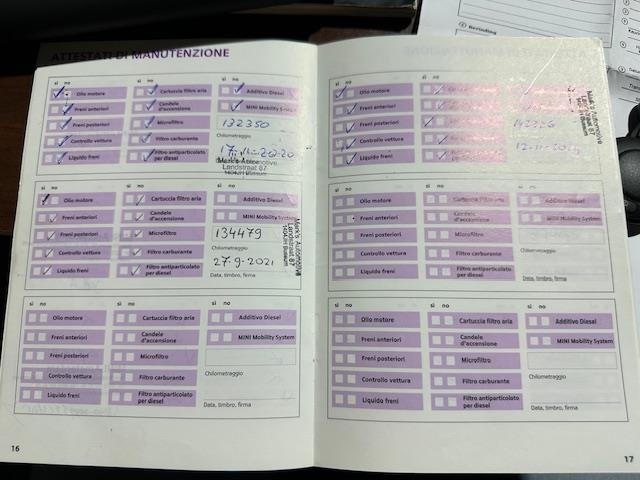 ATTESTATI DI MANUTENZIONE
sì no
Olio motore
Freni anteriori
Freni posteriori
Controllo vettura
Liquido freni
sì no
Cartuccia filtro aria
Candele
d'accensione
Microfiltro
Filtro carburante
Filtro antiparticolato
per diesel
sì no
Additivo Diesel
MINI Mobility System
132350
Chilometraggio
Mark's Automotive
Landstraat 87
1404JH Bussum
sì no
Olio motore
Freni anteriori
Freni posteriori
Controllo vettura
Liquido freni
sì no
Cartuccia filtro aria
Candele
d'accensione
Microfiltro
Filtro carburante
Filtro antiparticolato
per diesel
sì no
Additivo Diesel
MINI Mobility System
134479
Chilometraggio
27-9-2021
Data, timbro, firma
Mark's Automotive
Landstraat 87
1404JH Bussum
sì no
Olio motore
Freni anteriori
Freni posteriori
Controllo vettura
Liquido freni
sì no
Cartuccia filtro aria
Candele
d'accensione
Microfiltro
Filtro carburante
Filtro antiparticolato
per diesel
sì no
Additivo Diesel
MINI Mobility System
Chilometraggio
Data, timbro, firma
16
sì no
Olio motore
Freni anteriori
Freni posteriori
Controllo vettura
Liquido freni
Mark's Automotive
Landstraat 87
sì no
Olio motore
Freni anteriori
Freni posteriori
Controllo vettura
Liquido freni
sì no
Cartuccia filtro aria
Candele
d'accensione
Microfiltro
Filtro carburante
Filtro antiparticolato
per diesel
sì no
Additivo Diesel
MINI Mobility System
Chilometraggio
Data, timbro, firma
sì no
Olio motore
Freni anteriori
Freni posteriori
Controllo vettura
Liquido freni
sì no
Cartuccia filtro aria
Candele
d'accensione
Microfiltro
Filtro carburante
Filtro antiparticolato
per diesel
sì no
Additivo Diesel
MINI Mobility System
Chilometraggio
Data, timbro, firma
17